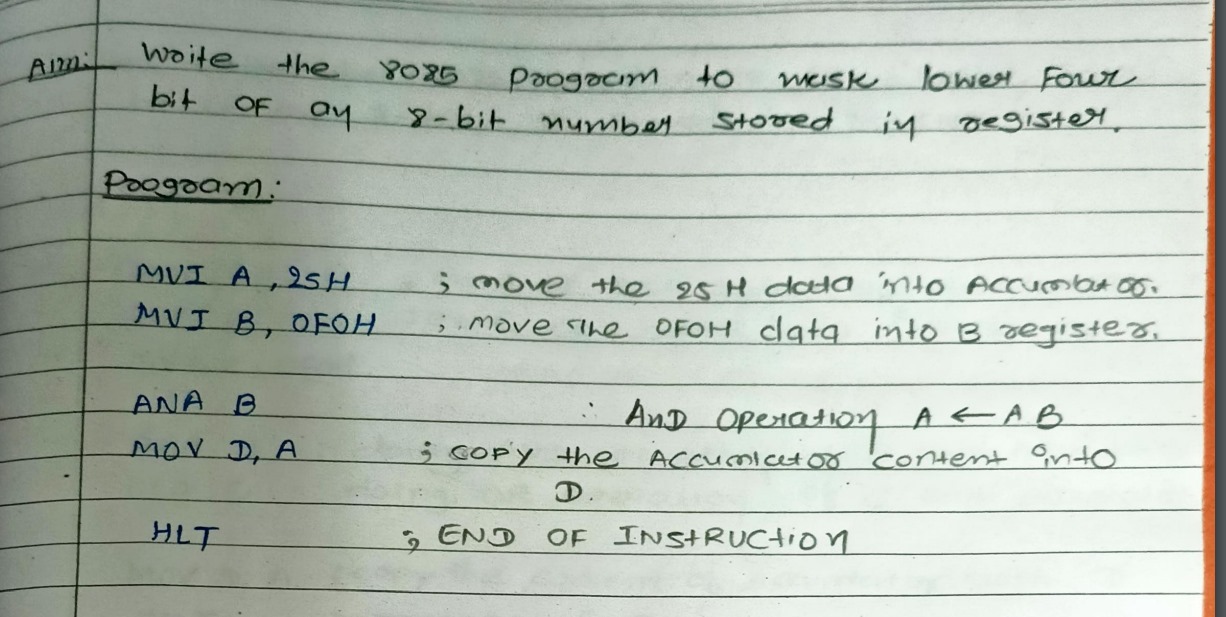 Aim: Write the 8085 Program to mask lower Four
bit OF an 8-bit number stored in register.
Program:
MVI A, 25H ; move the 25 H data into
MVI B, 0F0H ; move the 0F0H data into B register.
ANA B ; AnD Operation A ← A B
MOV D, A ; COPY the content into
D.
HLT ; END OF INStRUCtion